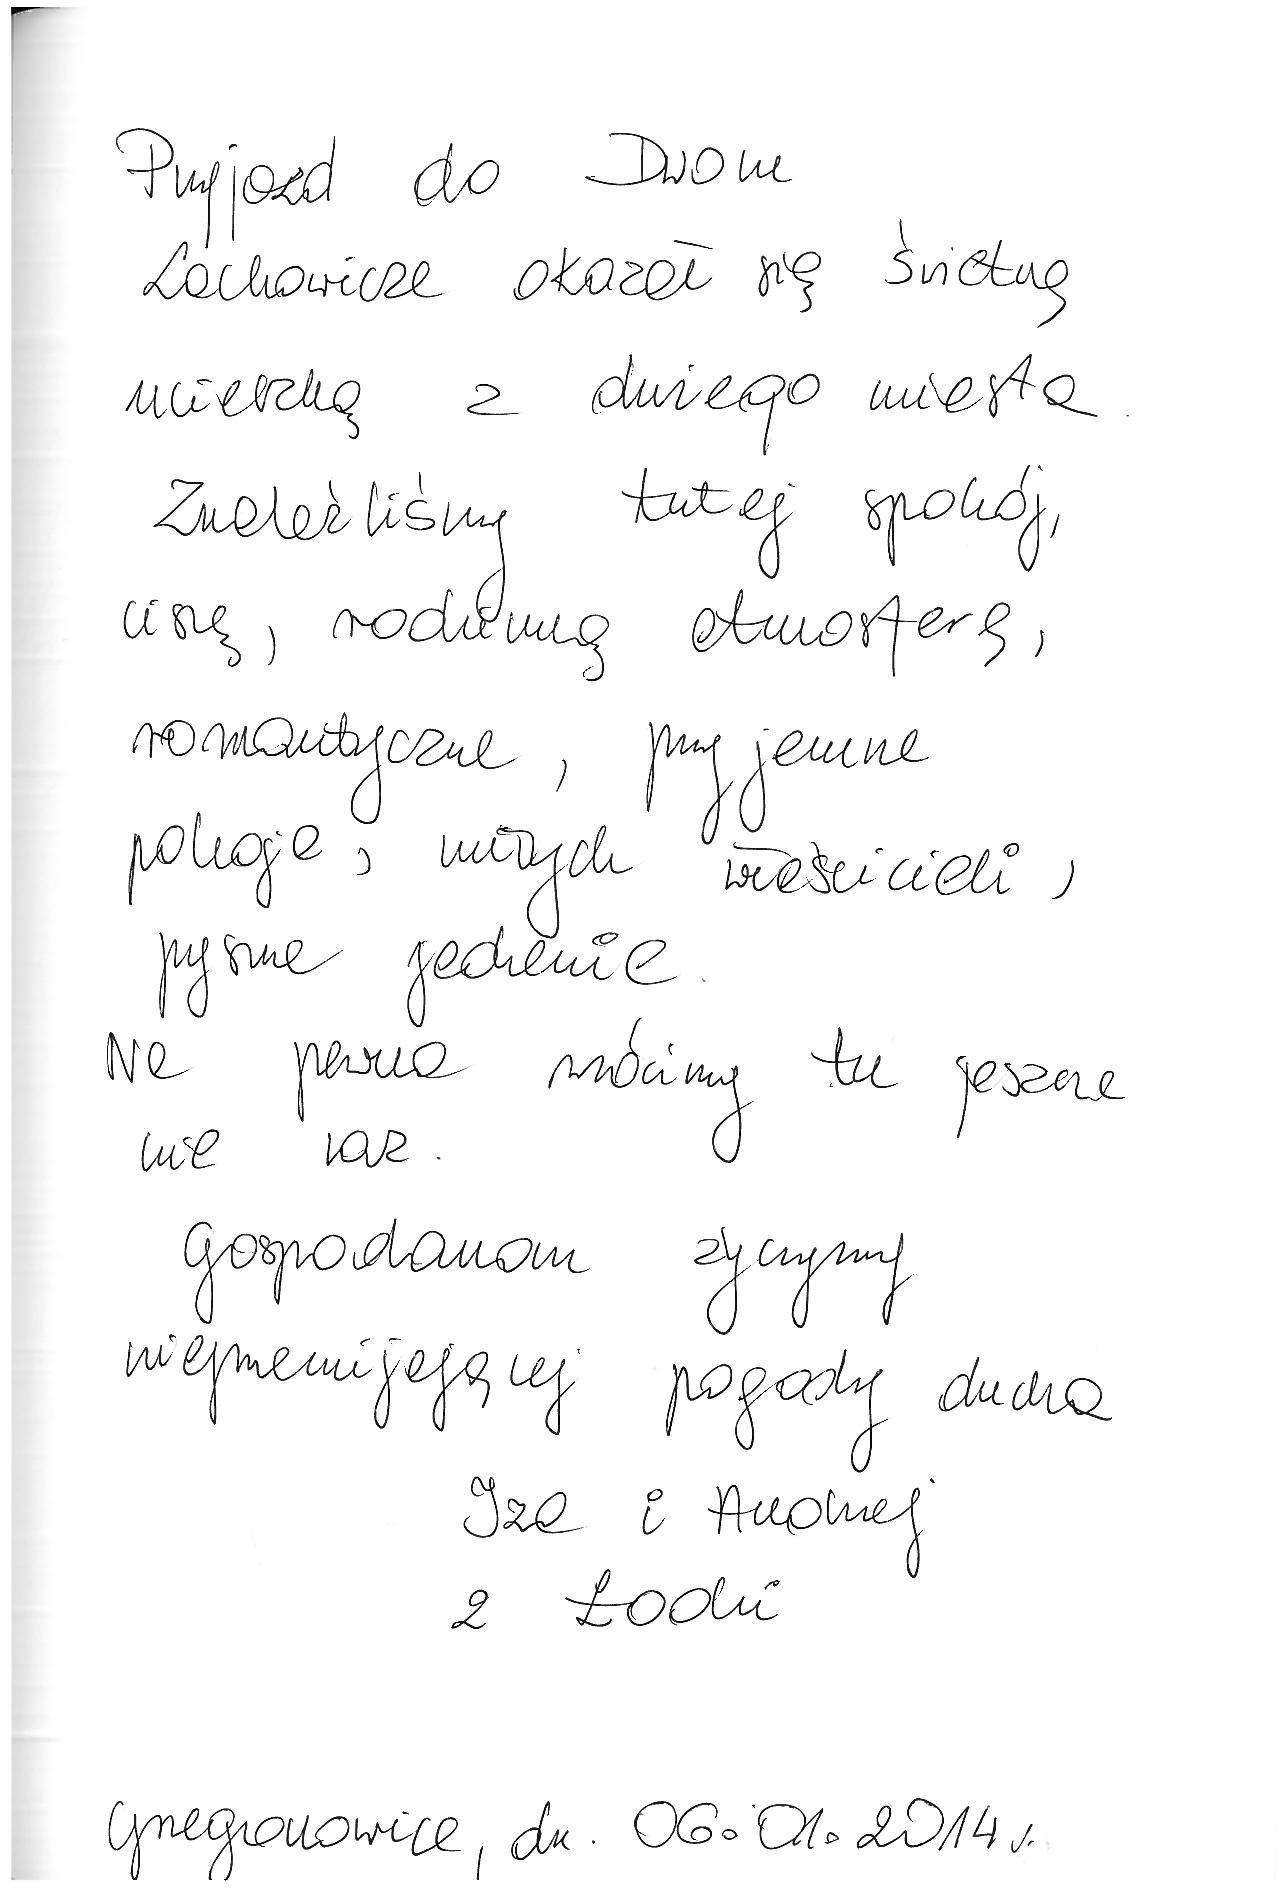 Przyjazd do Dworu
Lachowicze okazał się świetną
ucieczką z dużego miasta.
Znaleźliśmy tutaj spokój,
ciszę, rodzinną atmosferę,
romantyczne, przyjemne
pokoje, miłych właścicieli,
pyszne jedzenie.
Na pewno wrócimy tu jeszcze
nie raz.
Gospodarzom życzymy
nieprzemijającej pogody ducha
Iza i Andrzej
z Łodzi
Grzegorzowice, dn. 06.01.2014 r.